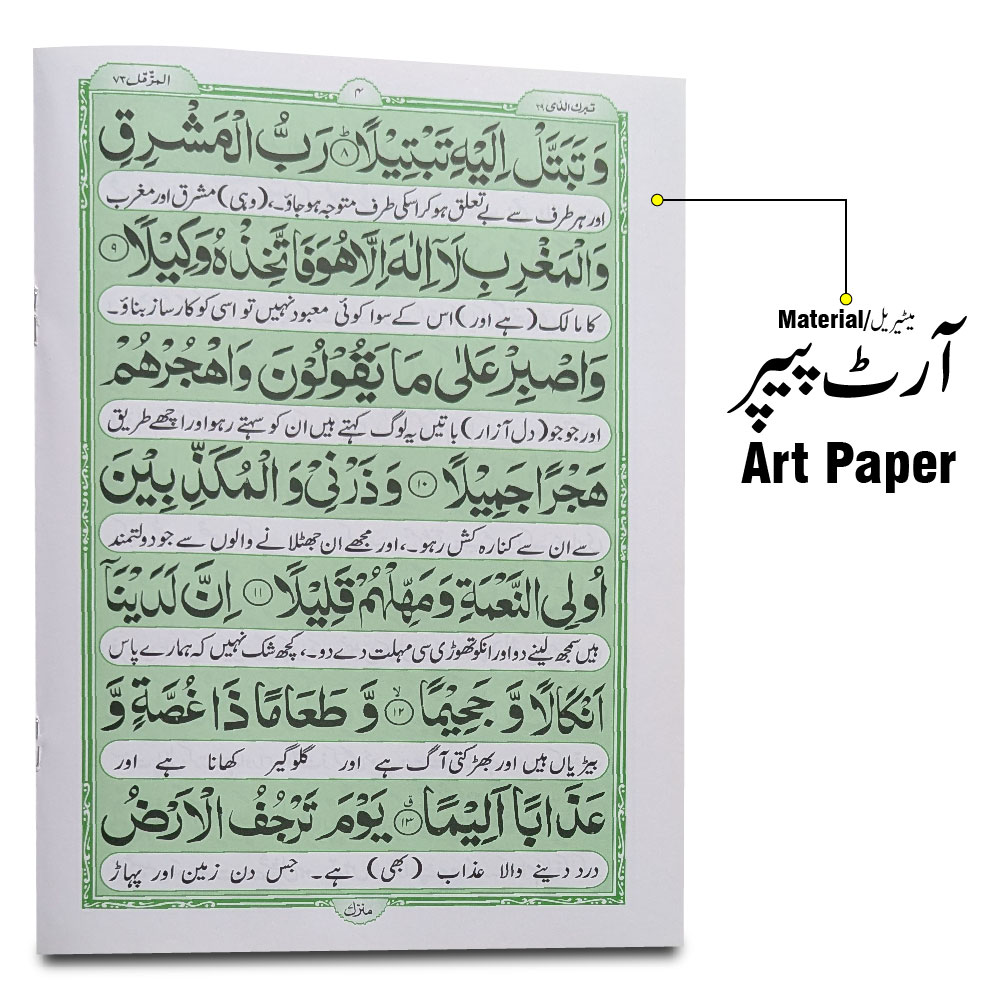 تبرك الذى ٢٩
۴
المزّمّل ٧٣
وَ تَبَتَّلْ اِلَيْهِ تَبْتِيْلًا ؕ﴿٨﴾ رَبُّ الْمَشْرِقِ
اور ہر طرف سے بے تعلق ہو کر اسکی طرف متوجہ ہو جاؤ۔، (وہی) مشرق اور مغرب
وَالْمَغْرِبِ لَاۤ اِلٰهَ اِلَّا هُوَ فَاتَّخِذْهُ وَكِيْلًا ﴿٩﴾
کا مالک (ہے اور) اس کے سوا کوئی معبود نہیں تو اسی کو کارساز بناؤ۔
وَاصْبِرْ عَلٰى مَا يَقُوْلُوْنَ وَاهْجُرْهُمْ
اور جو جو (دل آزار) باتیں یہ لوگ کہتے ہیں ان کو سہتے رہو اور اچھے طریق
هَجْرًا جَمِيْلًا ﴿١٠﴾ وَ ذَرْنِيْ وَ الْمُكَذِّبِيْنَ
سے ان سے کنارہ کش رہو۔، اور مجھے ان جھٹلانے والوں سے جو دولتمند
اُولِى النَّعْمَةِ وَ مَهِّلْهُمْ قَلِيْلًا ﴿١١﴾ اِنَّ لَدَيْنَاۤ
ہیں سمجھ لینے دو اور انکو تھوڑی سی مہلت دے دو۔، کچھ شک نہیں کہ ہمارے پاس
اَنْكَالًا وَّ جَحِيْمًا ۙ﴿١٢﴾ وَّ طَعَامًا ذَا غُصَّةٍ وَّ
بیڑیاں ہیں اور بھڑکتی آگ ہے اور گلوگیر کھانا ہے اور
عَذَابًا اَلِيْمًا ۗ﴿١٣﴾ يَوْمَ تَرْجُفُ الْاَرْضُ
درد دینے والا عذاب (بھی) ہے۔ جس دن زمین اور پہاڑ
Material/میٹیریل
آرٹ پیپر
Art Paper